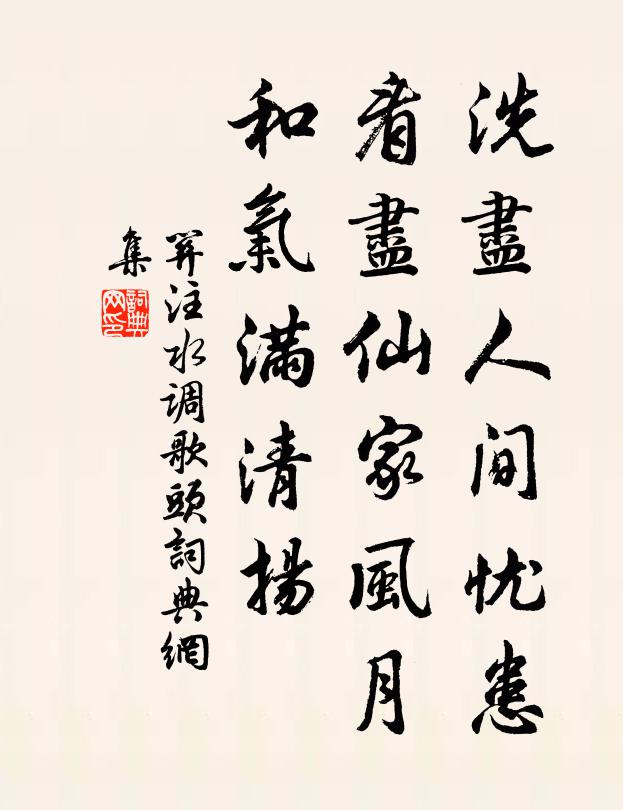 洗盡人间忧患
看盡仙家風月
和氣滿清揚
笄注水调歌頭詞典網
集
詞典
网印